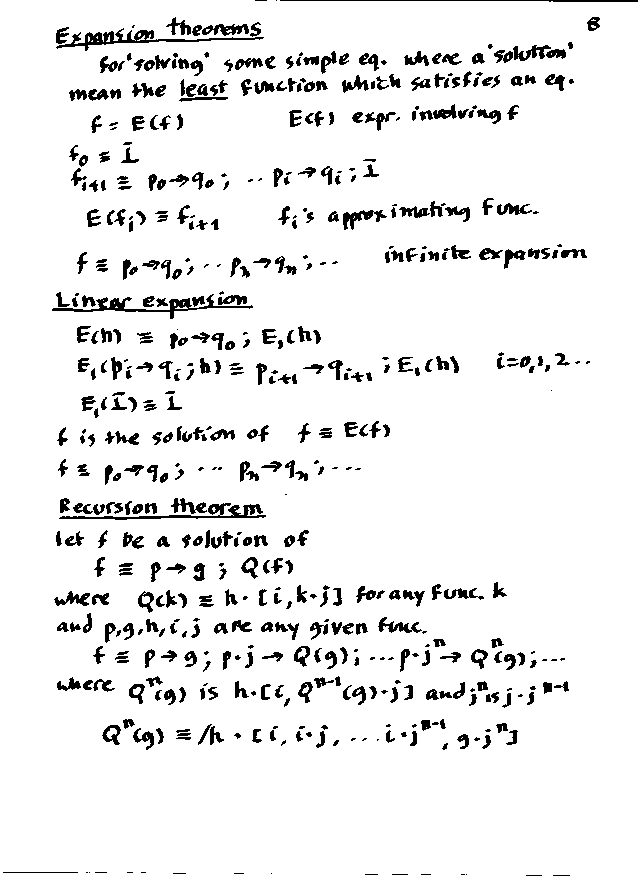 8
Expansion theorems
for 'solving' some simple eq. where a 'solution'
mean the least function which satisfies an eq.
f = E(f)   E(f) expr. involving f
f₀ ≡ ⊥̄
fᵢ₊₁ ≡ p₀→q₀; ·· pᵢ→qᵢ; ⊥̄
E(fᵢ) ≡ fᵢ₊₁   fᵢ's approximating func.
f ≡ p₀→q₀; ·· pₙ→qₙ; ···   infinite expansion
Linear expansion
E(h) ≡ p₀→q₀; E₁(h)
E₁(pᵢ→qᵢ; h) ≡ pᵢ₊₁→qᵢ₊₁; E₁(h)   i=0,1,2··
E₁(⊥̄) ≡ ⊥̄
f is the solution of f ≡ E(f)
f ≡ p₀→q₀; ··· pₙ→qₙ; ···
Recursion theorem
let f be a solution of
f ≡ p→g; Q(f)
where Q(k) ≡ h·[i, k·j] for any func. k
and p,g,h,i,j are any given func.
f ≡ p→g; p·j→Q(g); ··· p·jⁿ→Qⁿ(g); ···
where Qⁿ(g) is h·[i, Qⁿ⁻¹(g)·j] and jⁿ is j·jⁿ⁻¹
Qⁿ(g) ≡ /h·[i, i·j, ··· i·jⁿ⁻¹, g·jⁿ]